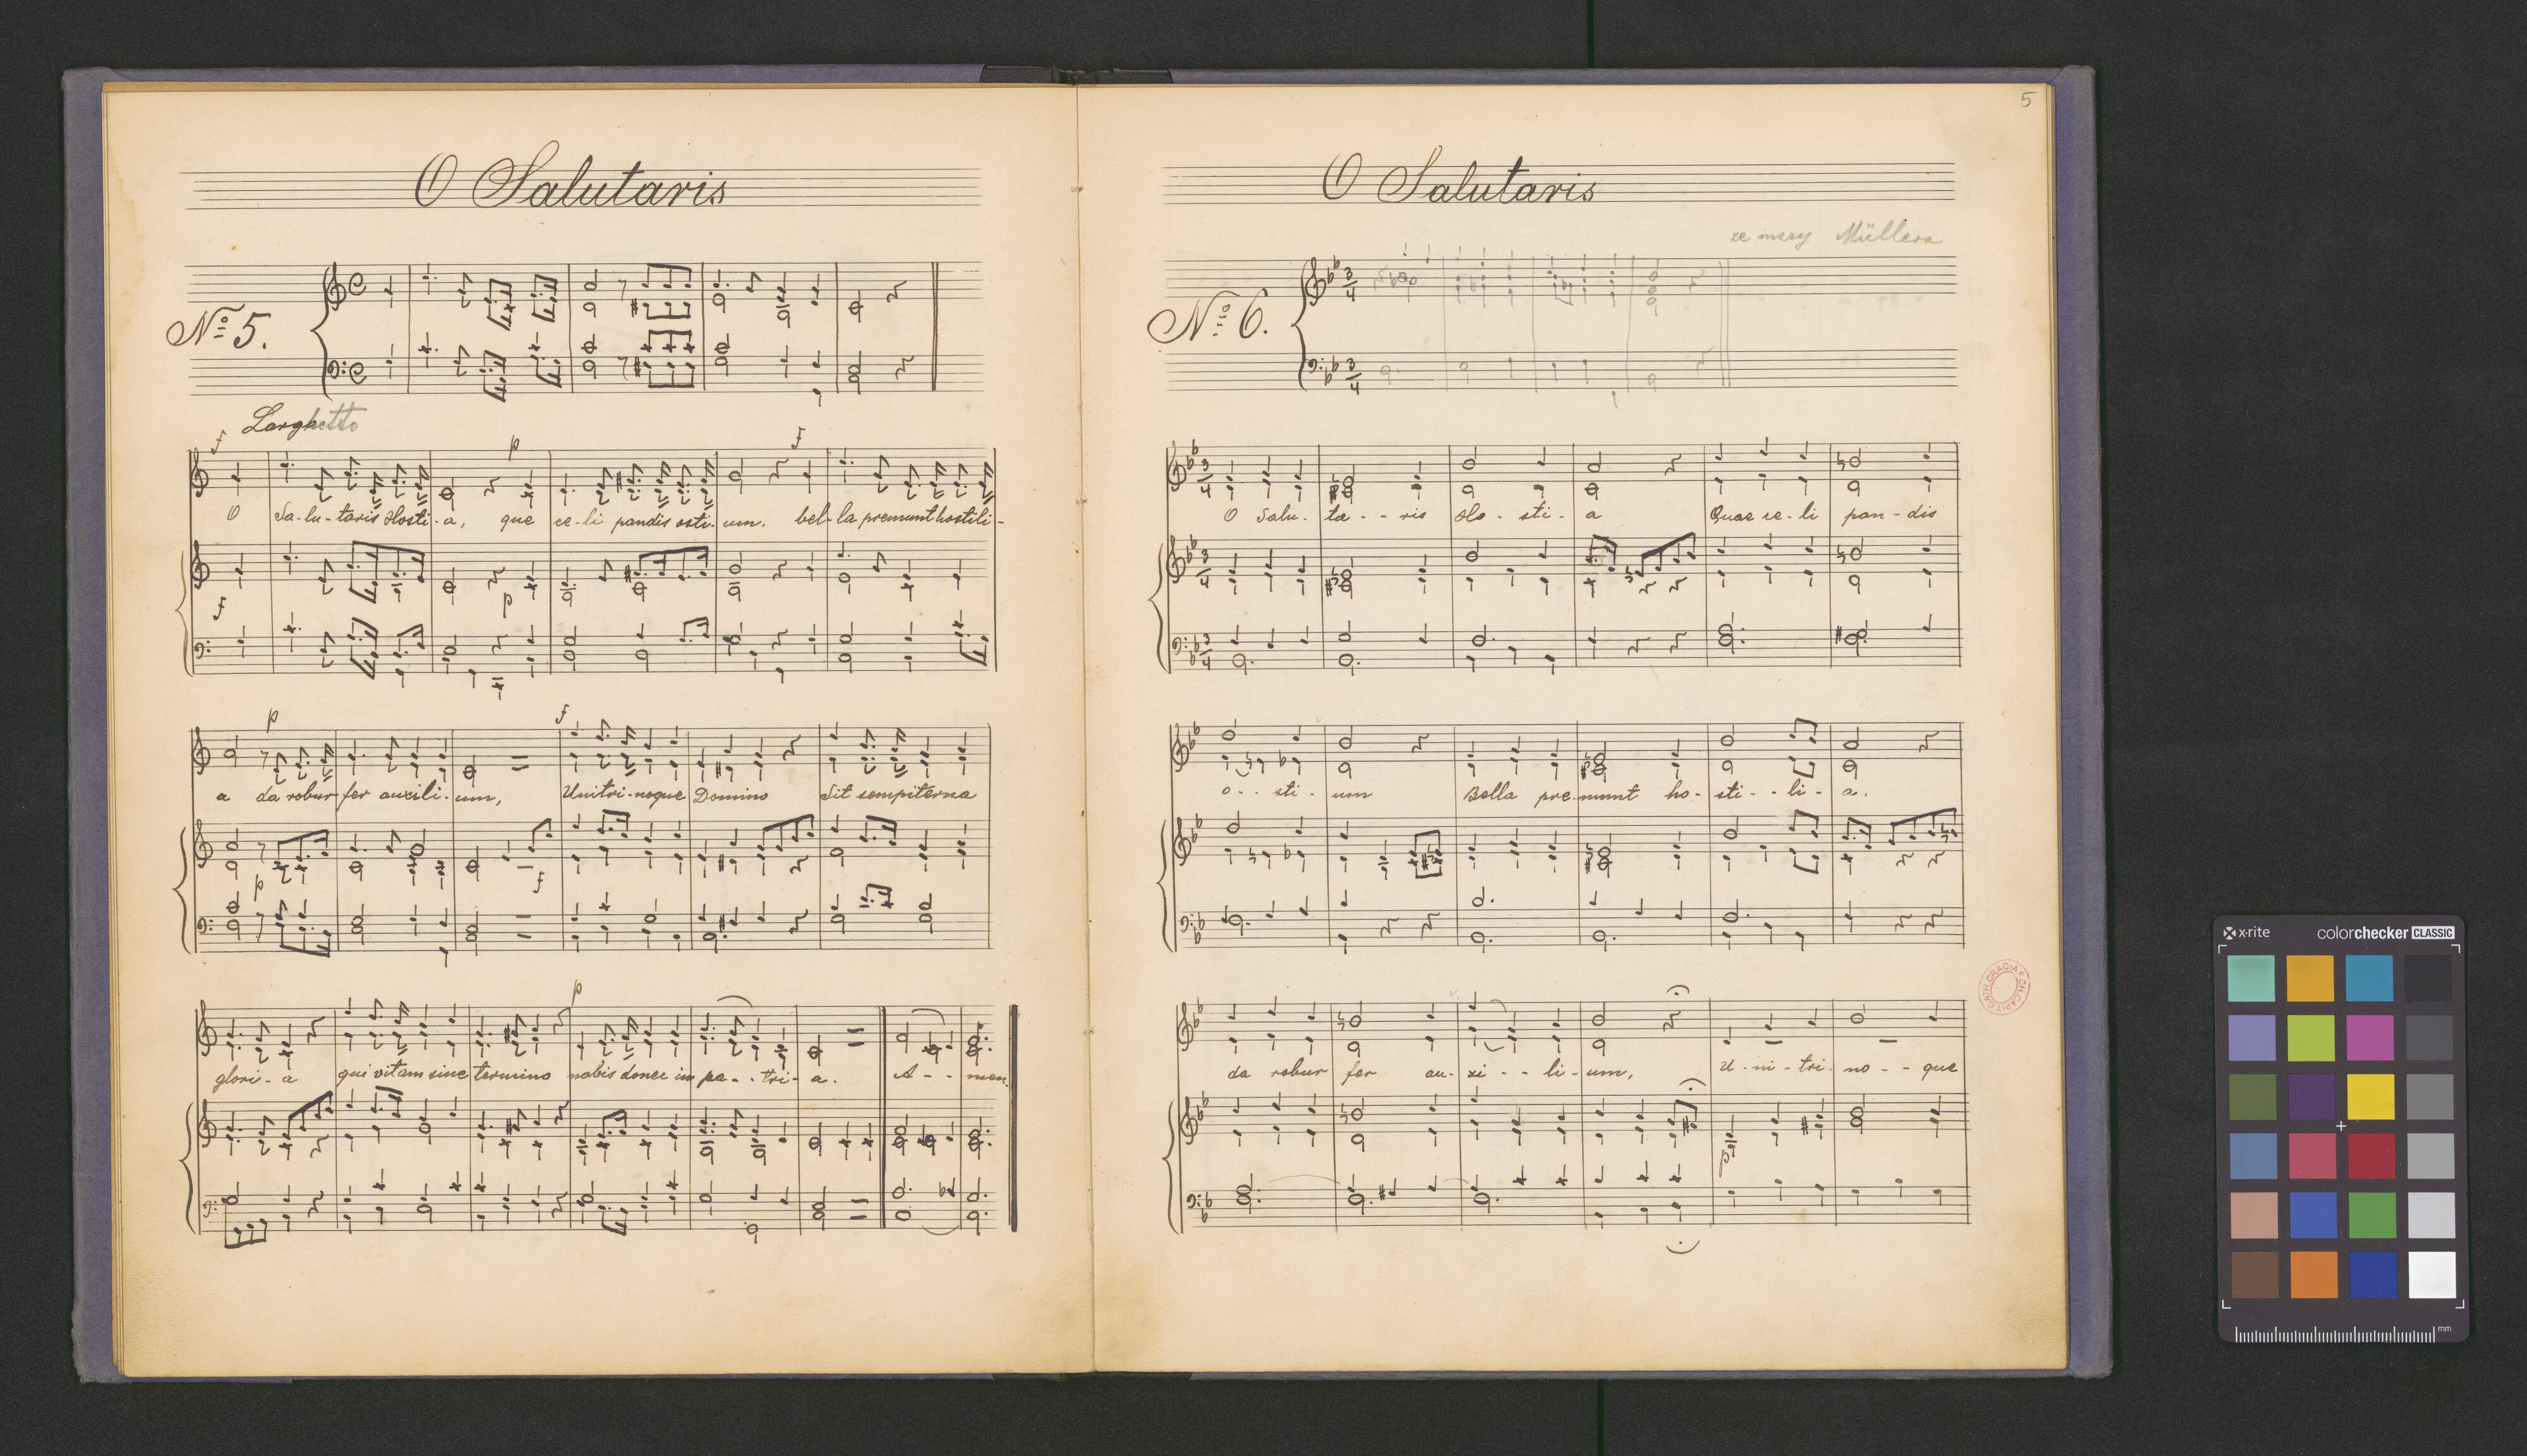 O Salutaris
No 5.
Larghetto
f p f
O Sa-lu-taris Hosti-a, que ce-li pandis osti-um. bel-la premunt hostili-
f p
p f
a da robur fer auxili-um, Unitri-noque Domino Sit sempiterna
p f
p
glori-a qui vitam sine termino nobis donec in pa-.-tri-a. A--men.
5
O Salutaris
ze mszy Müllera
No 6.
3/4
3/4
3/4
O Salu-ta--ris Ho-sti-a Quae ce-li pan-dis
3/4
3/4
o--sti-um Bella pre-munt ho-sti--li-a.
da robur fer au-xi--li-um, U-ni-tri-no--que
p
x-rite colorchecker CLASSIC
mm